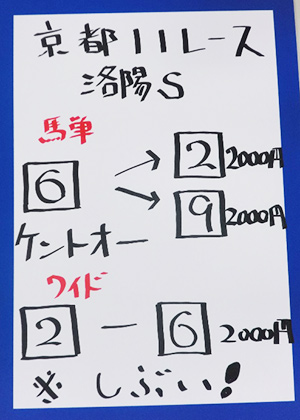 京都11レース
洛陽S
馬単
6 → 2 2000円
→ 9 2000円
ケントオー
ワイド
2 - 6 2000円
※ しぶい!